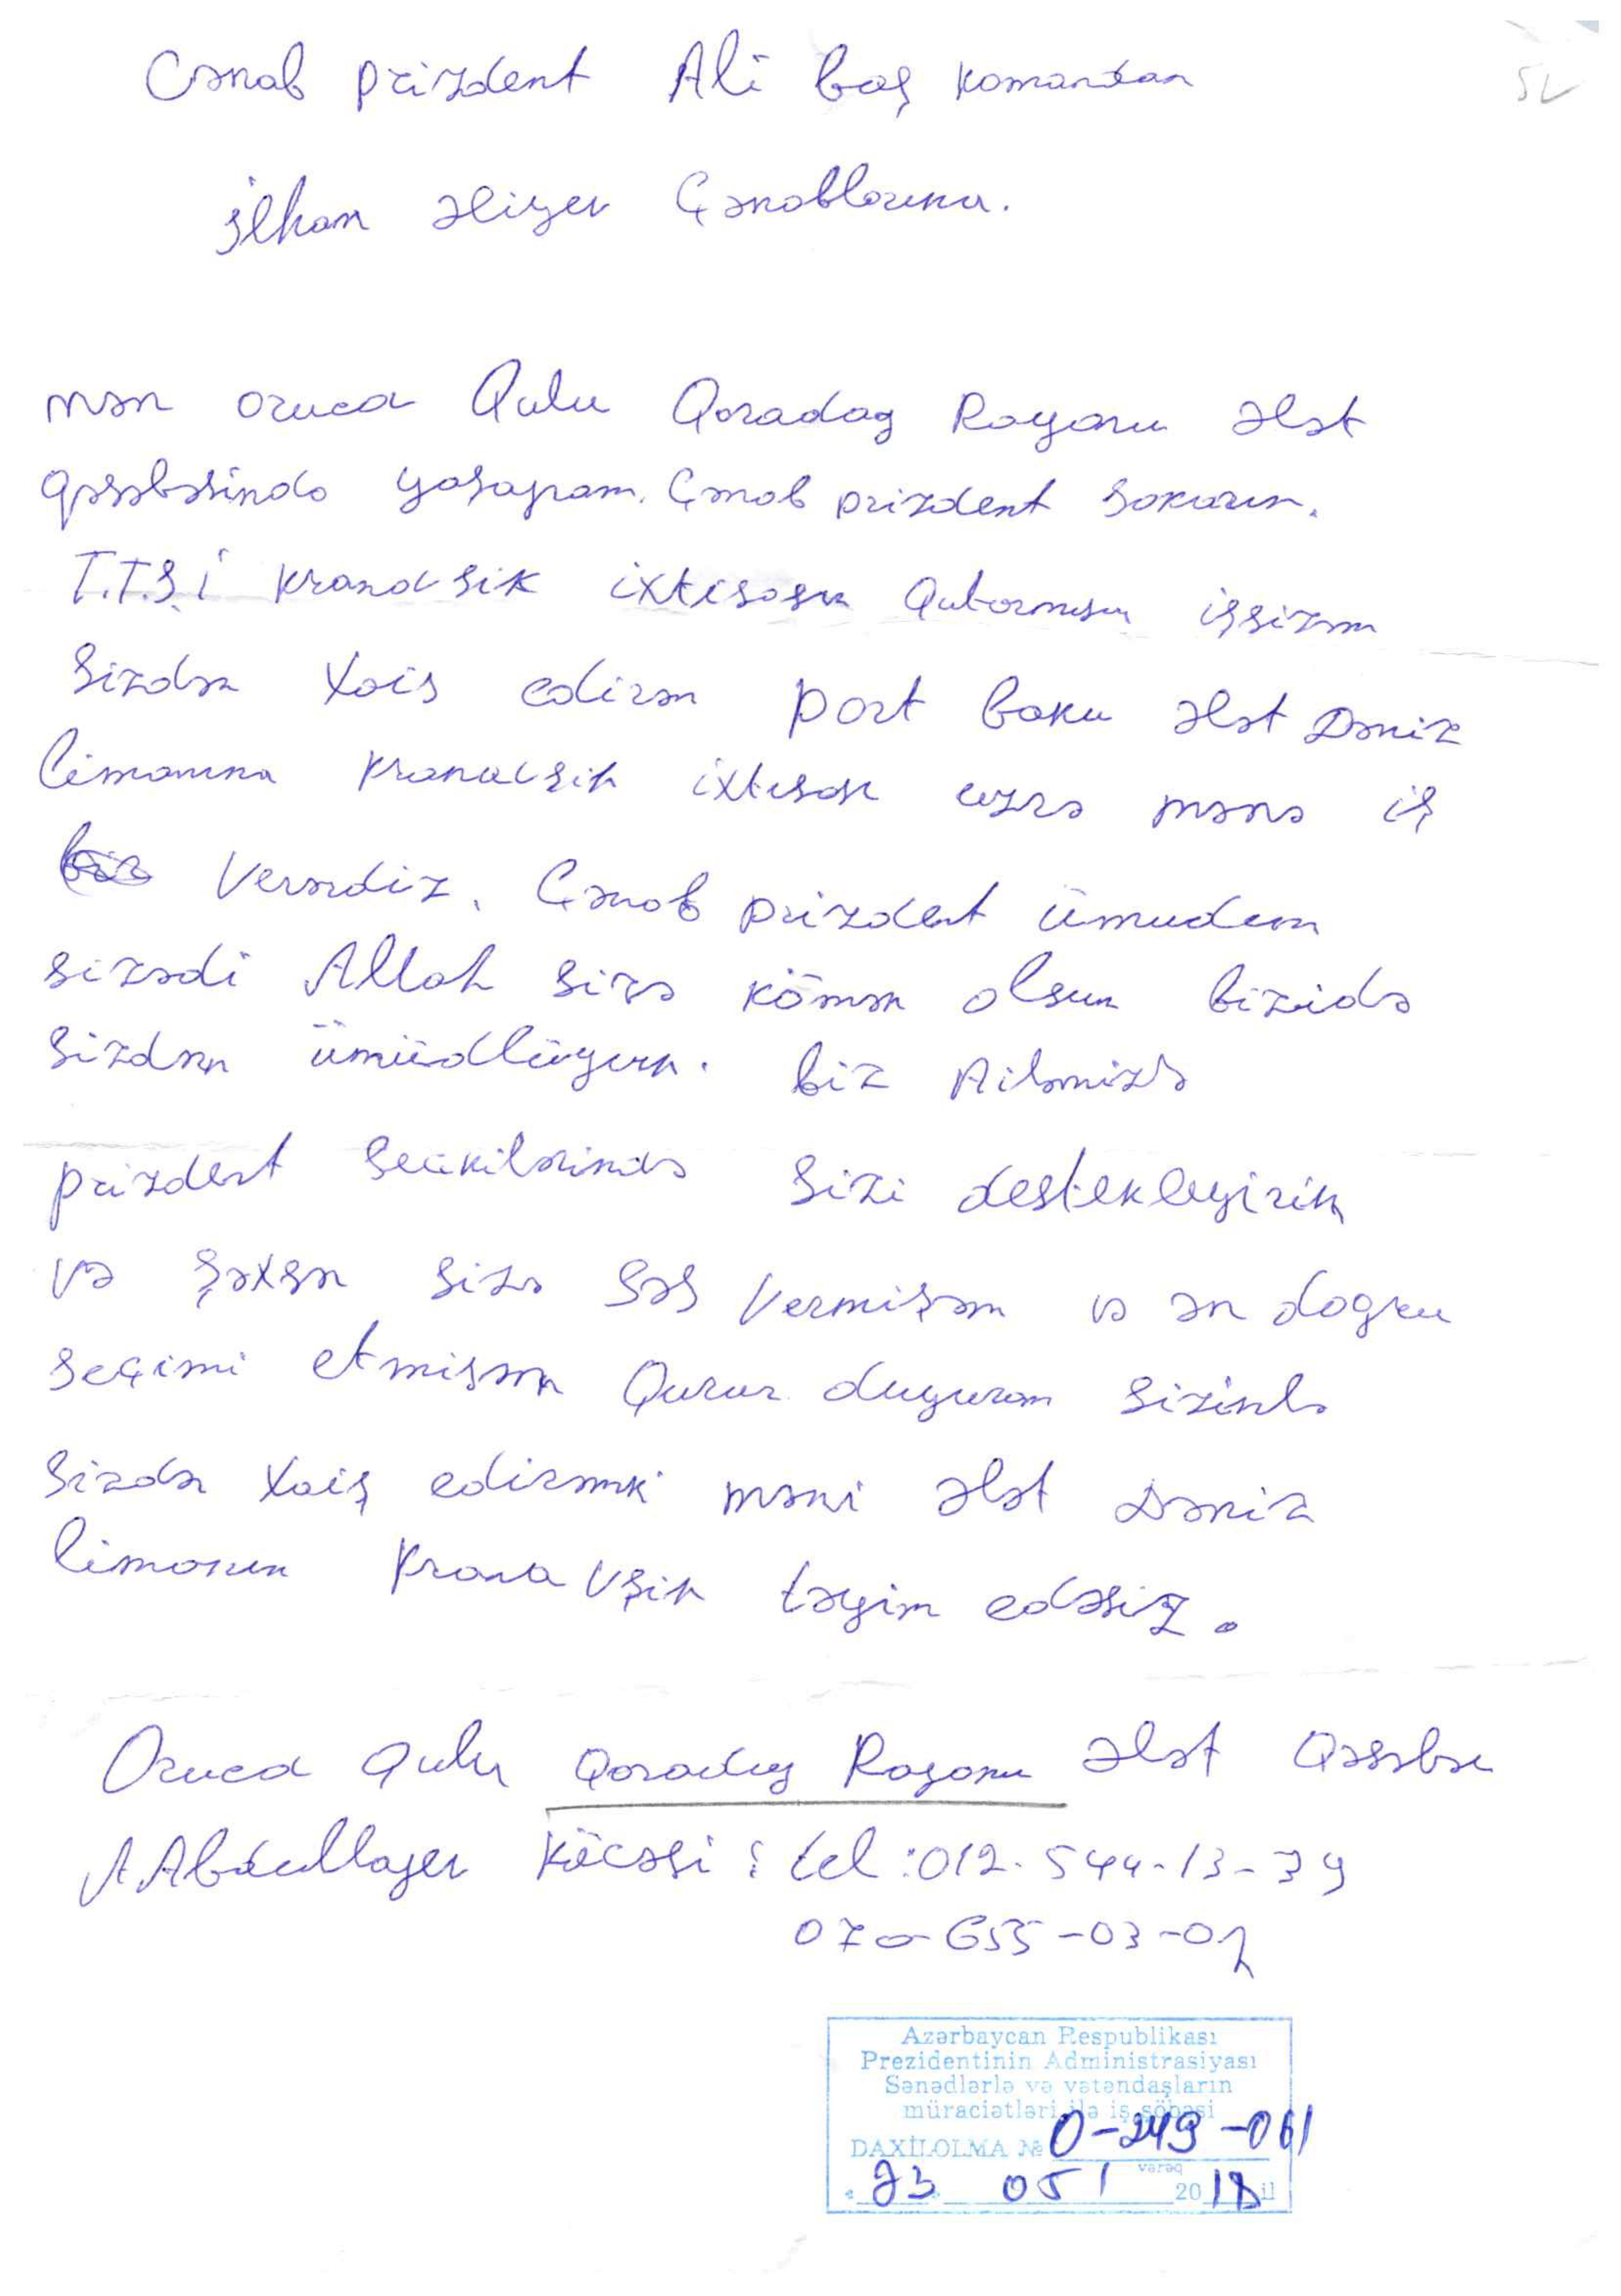 Cənab prizdent Ali baş komandan
SV
İlham əliyev Çənablarına.
mən oruca Qulu Qaradag Rayonu əlat
qəsəbəsində yaşayıram. Çənab prizdent
T.T.Ş.İ kranavsik ixtisası Qutarmışın işsizəm
Sizdən Xois edirəm port baku əlat Dəniz
limanına kranavsik ixtisası uzrə mənə iş
verərdiz. Çənab prizdent ümudum
sizədi Allah sizə kömən olsun bizidə
Sizdən ümüdlüyun. biz Ailəmizlə
prizdent Seckilərində Sizi destekleyirik
və Şəxsən sizə Səs Vermişəm və ən dogru
seçimi etmişəm Qurur duyuram Sizinlə
Sizdən Xoiş edirəmki məni əlat Dəniz
limanın kranavşik təyin edəsiz.
Oruca Qulu Qaradag Rayonu əlat Qəsəbəsi
A Abdullayev Köcəsi: tel: 012-544-13-39
070-655-03-02
Azərbaycan Respublikası
Prezidentinin Administrasiyası
Sənədlərlə və vətəndaşların
müraciətləri ilə iş şöbəsi
DAXİLOLMA № 0-249-061
vərəq
"23" 05 2018 il